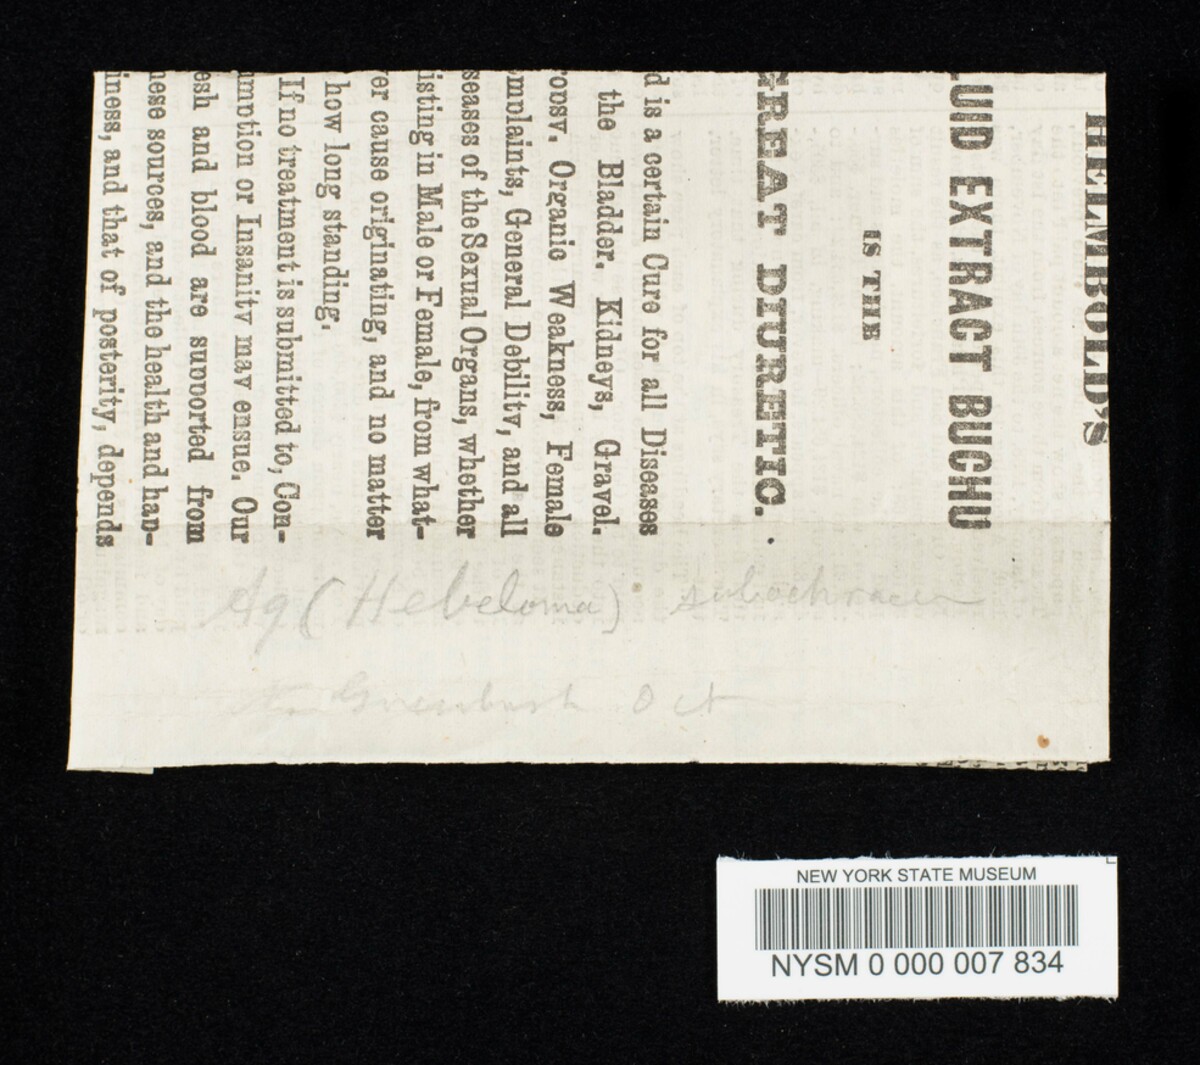 HELMBOLD'S
UID EXTRACT BUCHU
IS THE
GREAT DIURETIC.
d is a certain Cure for all Diseases
the Bladder. Kidneys, Gravel.
ropsv. Organic Weakness, Female
mplaints, General Debilitv, and all
seases of the Sexual Organs, whether
isting in Male or Female, from what-
er cause originating, and no matter
how long standing.
If no treatment is submitted to, Con-
umption or Insanitv mav ensue. Our
esh and blood are supported from
hese sources, and the health and hap-
iness, and that of posterity, depends
Ag (Hebeloma) subochracea
Greenbush Oct
NEW YORK STATE MUSEUM
NYSM 0 000 007 834